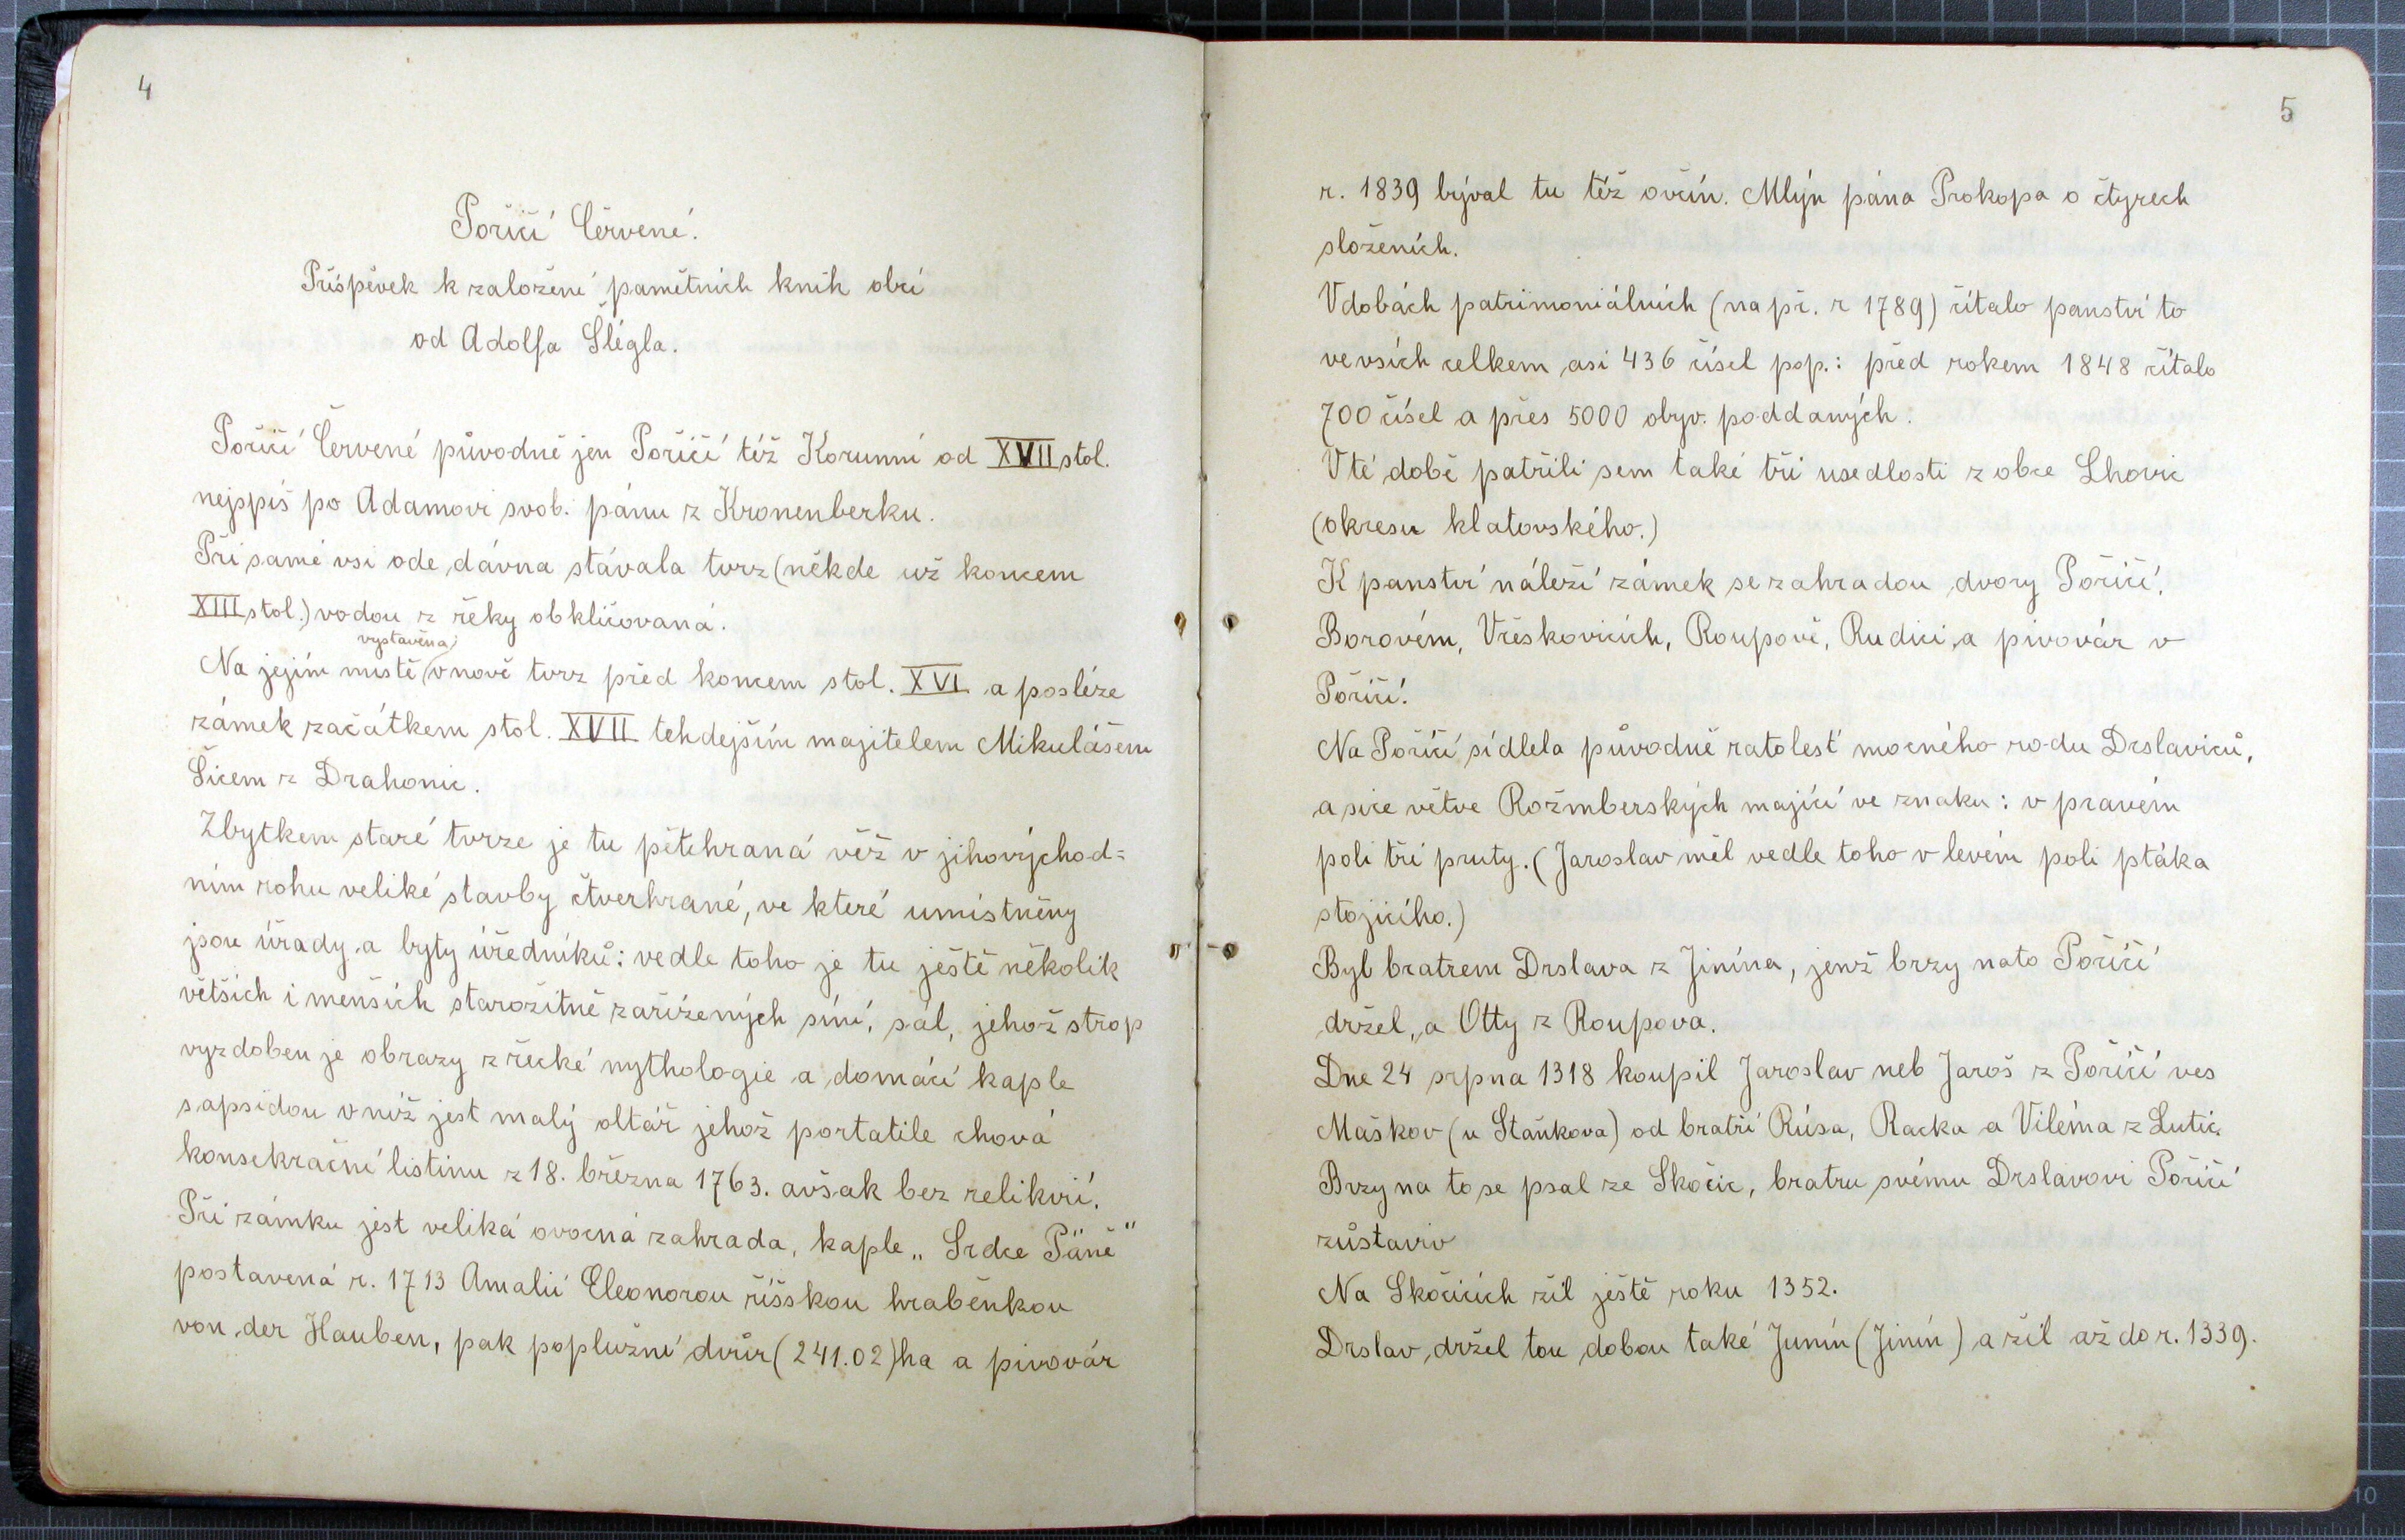 4
Poříčí Červené.
Příspěvek k založení pamětních knih obcí
od Adolfa Šlégla.
Poříčí Červené původně jen Poříčí též Korunní od XVII stol.
nejspíš po Adamovi svob. pánu z Kronenberku.
Při samé vsi ode dávna stávala tvrz (někde už koncem
XIII stol.) vodou z řeky obkličovaná.
vystavěna
Na jejím místě (v nově tvrz před koncem stol. XVI a posléze
zámek začátkem stol. XVII tehdejším majitelem Mikulášem
Šicem z Drahonic.
Zbytkem staré tvrze je tu pětihraná věž v jihovýchod=
ním rohu veliké stavby čtverhrané, ve které umístněny
jsou úřady a byty úředníků: vedle toho je tu ještě několik
větších i menších starožitně zařízených síní, sál, jehož strop
vyzdoben je obrazy z řecké mythologie a domácí kaple
s apsidou v níž jest malý oltář jehož portatile chová
konsekrační listinu z 18. března 1763. avšak bez relikvií.
Při zámku jest veliká ovocná zahrada, kaple „Srdce Páně"
postavená r. 1713 Amalií Eleonorou říšskou hraběnkou
von der Hauben, pak poplužní dvůr (241.02) ha a pivovár
5
r. 1839 býval tu též ovčín. Mlýn pána Prokopa o čtyrech
složeních.
V dobách patrimoniálních (na př. r 1789) čítalo panství to
ve vsích celkem asi 436 čísel pop.: před rokem 1848 čítalo
700 čísel a přes 5000 obyv. poddaných.
V té době patřili sem také tři usedlosti z obce Lhovic
(okresu klatovského.)
K panství náleží zámek se zahradou, dvory Poříčí,
Borovém, Vřeskovicích, Roupově, Rudici, a pivovár v
Poříčí.
Na Poříčí sídlela původně ratolesť mocného rodu Drslaviců,
a sice větve Rožmberských mající ve znaku: v pravém
poli tři pruty. (Jaroslav měl vedle toho v levém poli ptáka
stojícího.)
Byl bratrem Drslava z Jinína, jenž brzy nato Poříčí
držel, a Otty z Roupova.
Dne 24 srpna 1318 koupil Jaroslav neb Jaroš z Poříčí ves
Maškov (u Staňkova) od bratří Rúsa, Racka a Viléma z Lutic.
Brzy na to se psal ze Skočic, bratru svému Drslavovi Poříčí
zůstaviv
Na Skočicích žil ještě roku 1352.
Drslav, držel tou dobou také Junín (Jinín) a žil až do r. 1339.
10